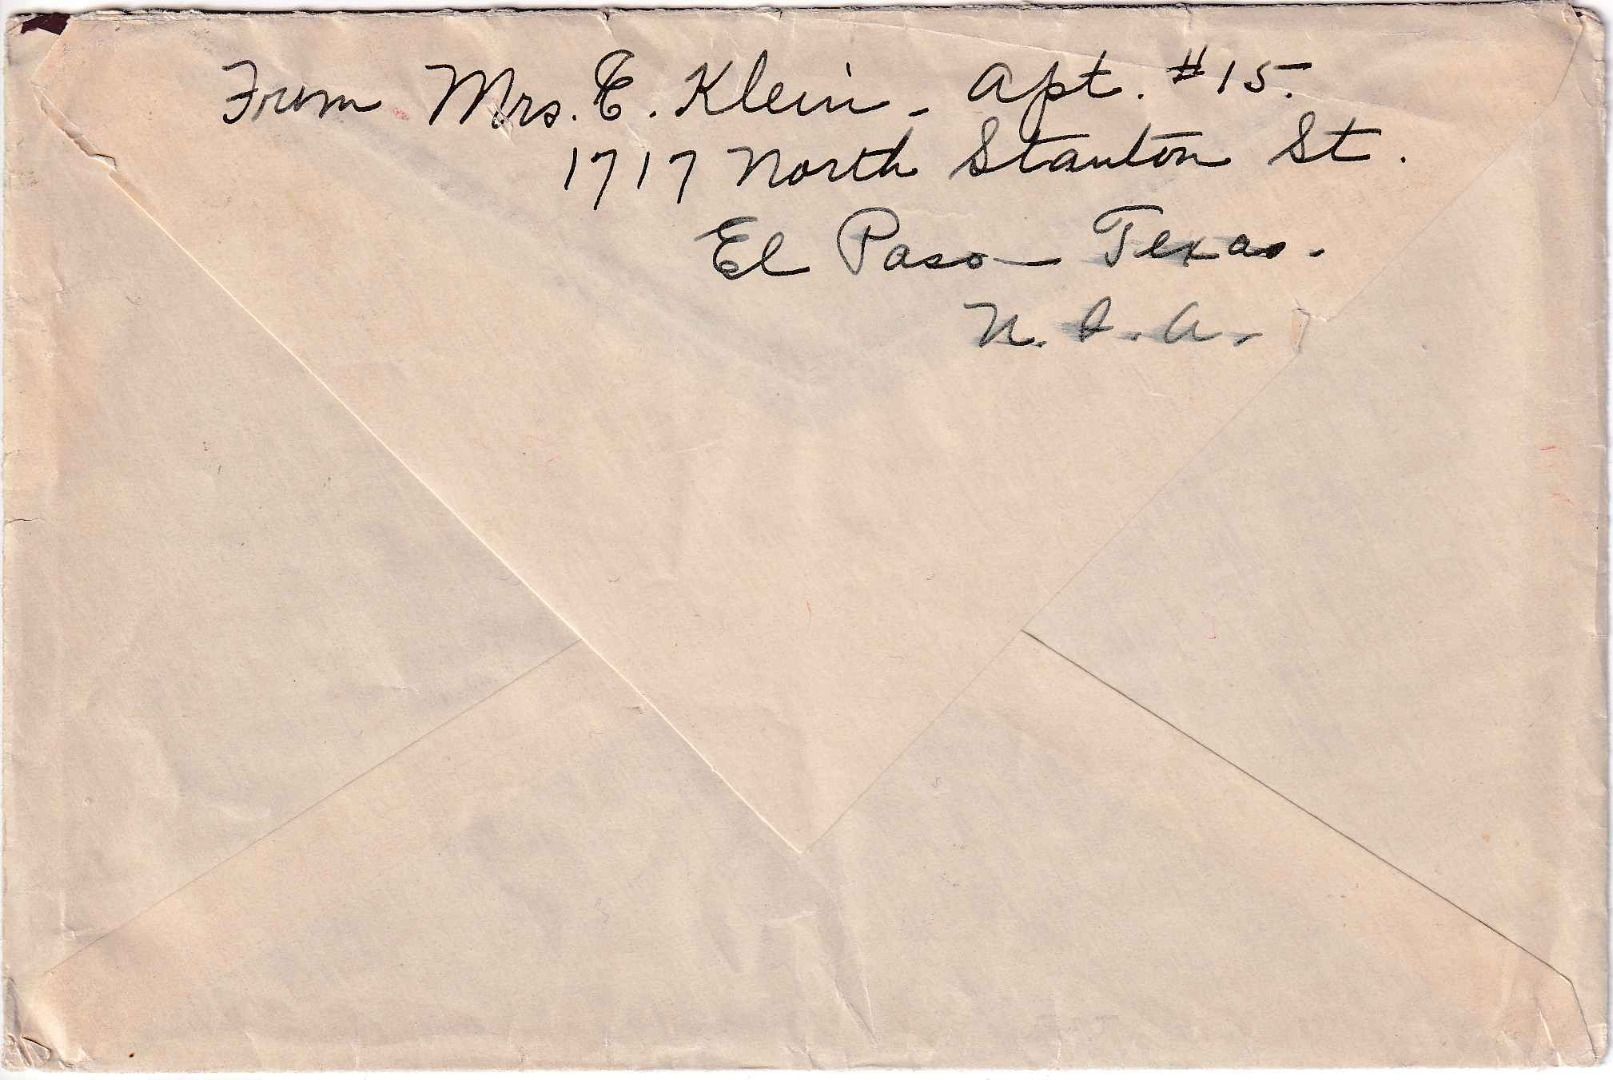 From Mrs. E. Klein - Apt. #15.
1717 North Stanton St.
El Paso - Texas.
U.S.A.